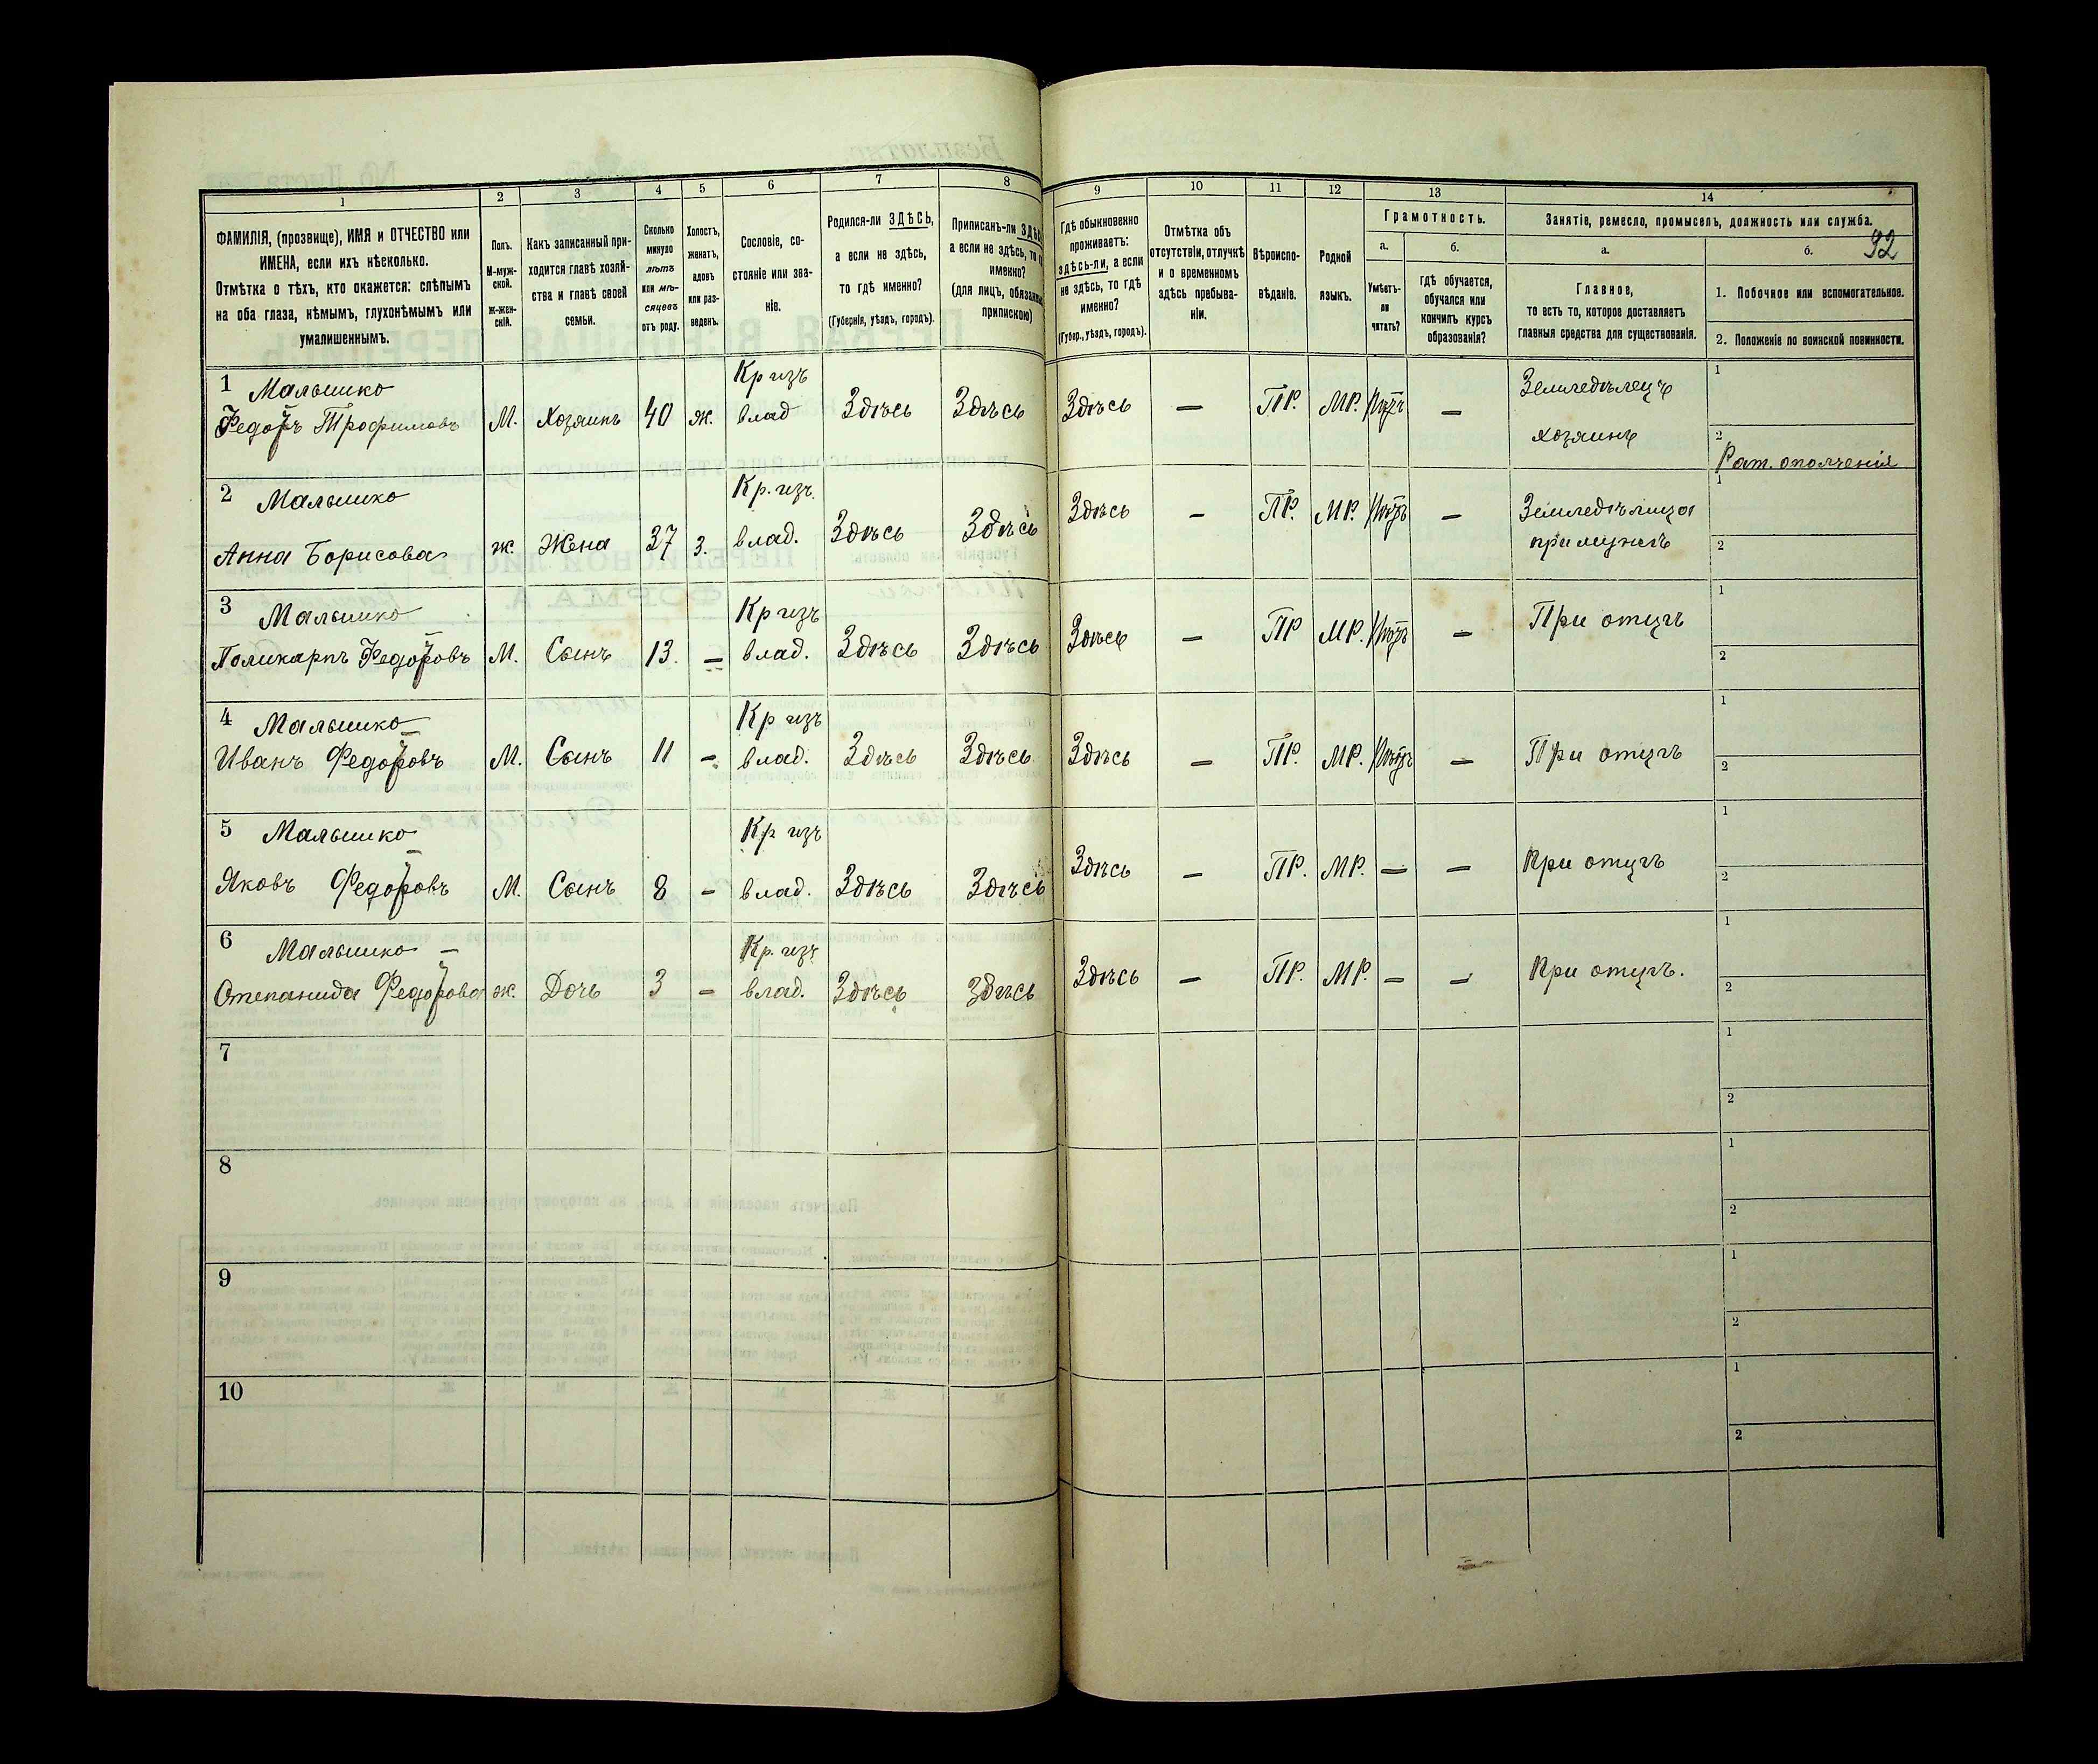 1 2 3 4 5 6 7 8 9 10 11 12 13 14
ФАМИЛІЯ, (прозвище), ИМЯ и ОТЧЕСТВО или
ИМЕНА, если ихъ нѣсколько.
Отмѣтка о тѣхъ, кто окажется: слѣпымъ
на оба глаза, нѣмымъ, глухонѣмымъ или
умалишеннымъ.
Полъ.
М-муж-
ской.
Ж-жен-
скій.
Какъ записанный при-
ходится главѣ хозяй-
ства и главѣ своей
семьи.
Сколько
минуло
лѣтъ
или мѣ-
сяцевъ
отъ роду.
Холостъ,
женатъ,
вдовъ
или раз-
веденъ.
Сословіе, со-
стояніе или зва-
ніе.
Родился-ли ЗДѢСЬ,
а если не здѣсь,
то гдѣ именно?
(Губернія, уѣздъ, городъ).
Приписанъ-ли
а если не здѣсь, то
именно?
(для лицъ,
припискою)
Гдѣ обыкновенно
проживаетъ:
здѣсь-ли, а если
не здѣсь, то гдѣ
именно?
(Губер., уѣздъ, городъ).
Отмѣтка объ
отсутствіи, отлучкѣ
и о временномъ
здѣсь пребыва-
ніи.
Вѣроиспо-
вѣданіе.
Родной
языкъ.
Грамотность.
а.
Умѣетъ-
ли
читать?
б.
гдѣ обучается,
обучался или
кончилъ курсъ
образованія?
Занятіе, ремесло, промыселъ, должность или служба.
а.
Главное,
то есть то, которое доставляетъ
главныя средства для существованія.
б.
92
1. Побочное или вспомогательное.
2. Положеніе по воинской повинности.
1 Малышко Кр изъ Земледѣлецъ 1
Федоръ Трофимовъ М. Хозяинъ 40 ж. влад Здѣсь Здѣсь Здѣсь — ПР. МР. Нѣтъ —
хозяинъ 2
Рат. ополченія
2 Малышко Кр. изъ Земледѣлица 1
Анна Борисова ж. Жена 37 з. влад. Здѣсь Здѣсь Здѣсь — ПР. МР. Нѣтъ — при мужѣ 2
3 Малышко Кр изъ 1
Поликарпъ Федоровъ М. Сынъ 13. — влад. Здѣсь Здѣсь Здѣсь — ПР МР. Нѣтъ — При отцѣ 2
4 Малышко Кр изъ 1
Иванъ Федоровъ М. Сынъ 11 — влад. Здѣсь Здѣсь Здѣсь — ПР. МР. Нѣтъ — При отцѣ 2
5 Малышко Кр изъ 1
Яковъ Федоровъ М. Сынъ 8 — влад. Здѣсь Здѣсь Здѣсь — ПР. МР. — — При отцѣ 2
6 Малышко Кр. изъ 1
Степанида Федорова ж. Дочь 3 — влад. Здѣсь Здѣсь Здѣсь — ПР. МР. — — При отцѣ. 2
7 1
2
8 1
2
9 1
2
10 1
2